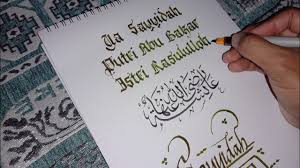 Ya Sayyidah
Putri Abu Bakar
Istri Rasulullah
عائشة رضي الله عنها
Sayyidah